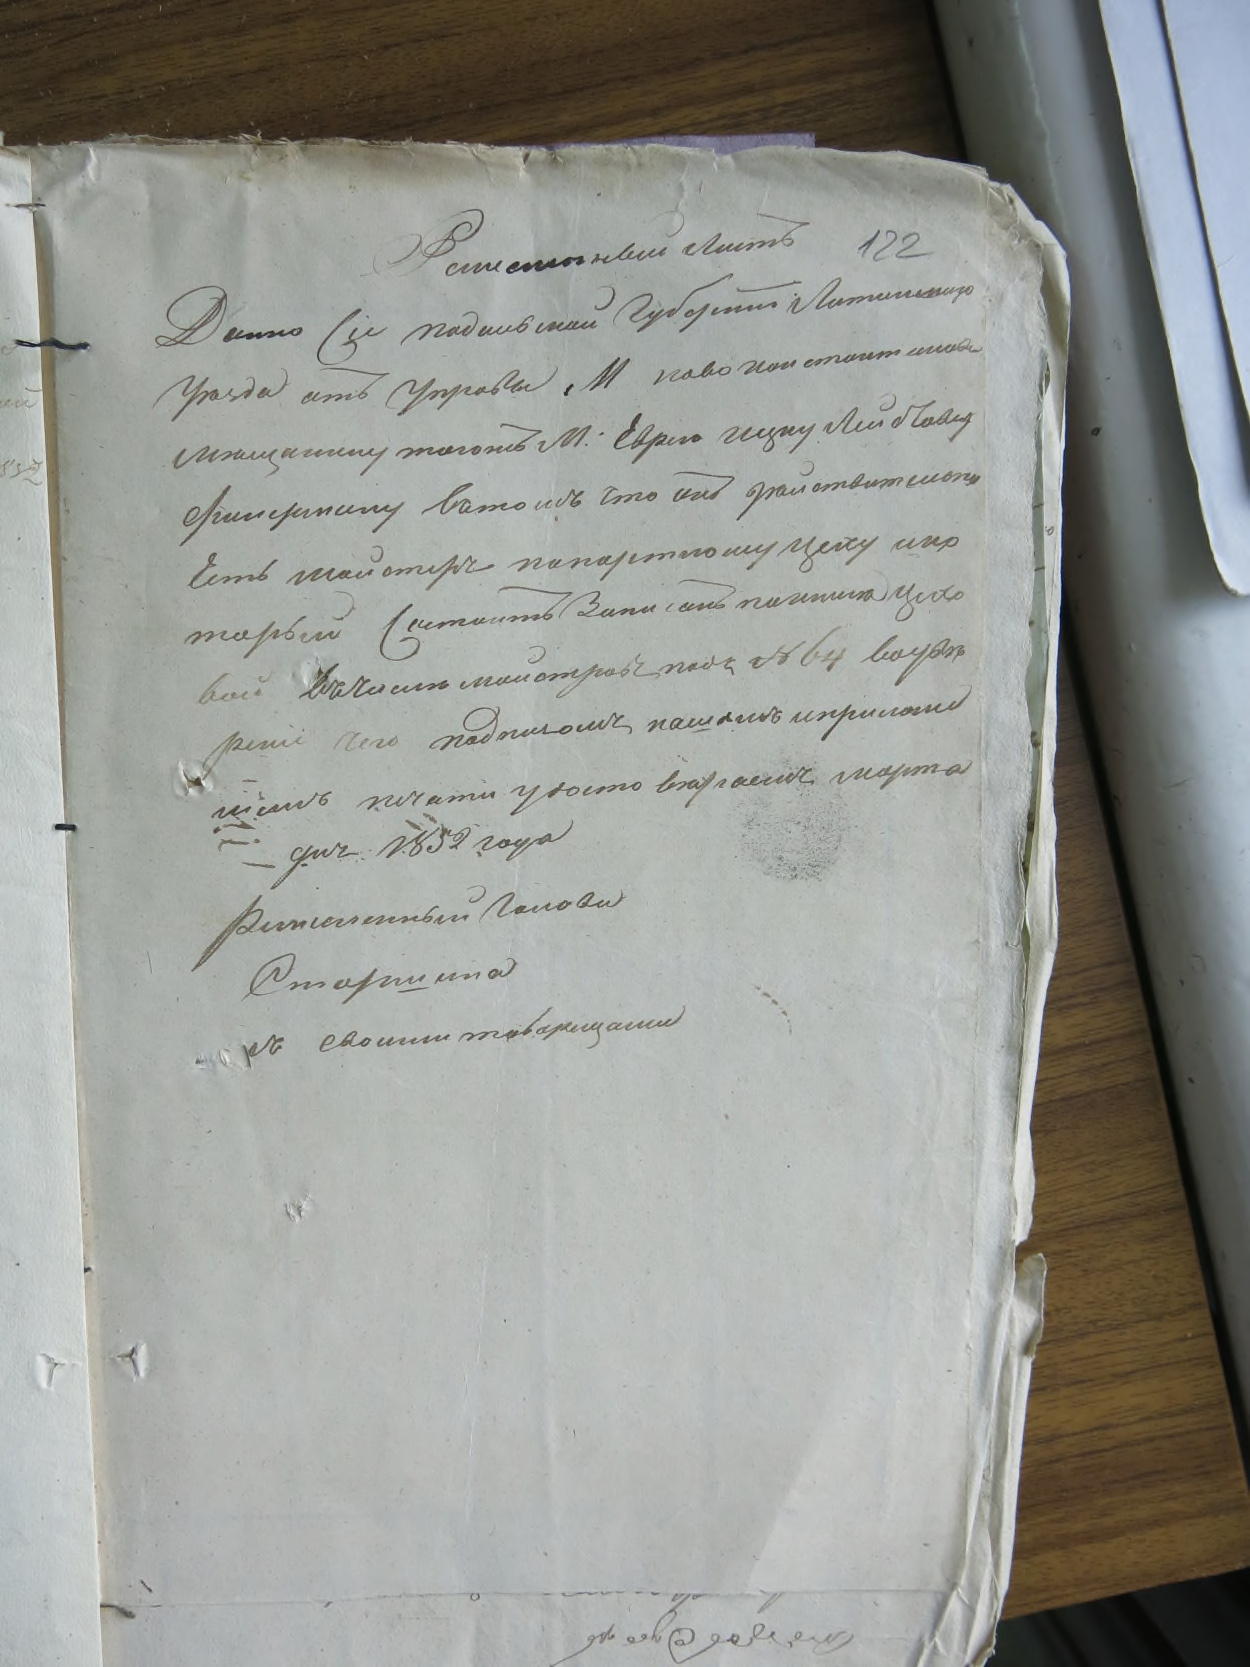 Ремесленный Листъ 122
Данно Сіе подольской Губерніи Литинскаго
уезда отъ управы М новоконстантинова
мещанину тогожъ М: Еврею ицку Лейбовау
втомъ что онъ действительно
Есть майстеръ попортному цеху ико
торый Состоитъ Записанъ покниги цехо
вой вчисле майстровъ подъ № 64 воуве
реніе чего подписомъ нашимъ иприложе
ніемъ печати удостовераемъ марта
— дня 1852 года
Ремесленный Голова
Старшина
съ своими товарищами